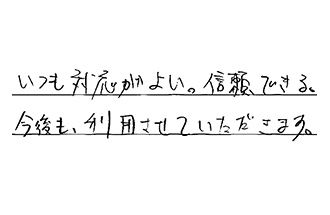 いつも対応がよい。信頼できる。
今後も、利用させていただきます。